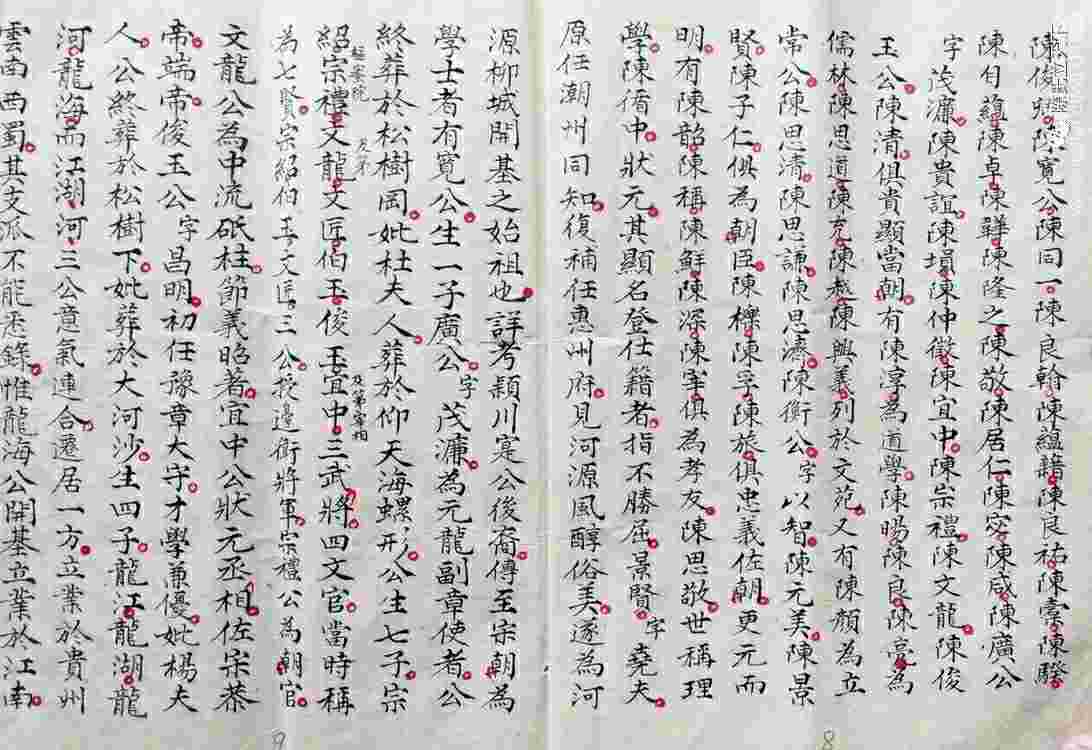 陳俊卿陳寬公陳同一陳良翰陳蘊籍陳良祐陳橐陳騤
陳自蘊陳卓陳韡陳隆之陳敬陳居仁陳宓陳咸陳廣公
字茂濂陳貴誼陳塤陳仲微陳宜中陳宗禮陳文龍陳俊
玉公陳清俱貴顯當朝有陳淳為道學陳暘陳良陳亮為
儒林陳思道陳充陳越陳興義列於文苑又有陳顏為立
常公陳思濟陳思謙陳思濟陳衡公字以智陳元美陳景
賢陳子仁俱為朝臣陳櫟陳孚陳旅俱忠義佐朝更元而
明有陳韶陳稱陳鮮陳深陳宰俱為孝友陳思敬世稱理
學陳循中狀元其顯名登仕籍者指不勝屈景賢字堯夫
原任潮州同知復補任惠州府見河源風醇俗美遂為河
源柳城開基之始祖也詳考穎川寔公後裔傳至宗朝為
學士者有寬公生一子廣公字茂濂為元龍副章使者公
終葬於松樹岡妣杜夫人葬於仰天海螺形公生七子宗
紹宗禮文龍文匠伯玉俊玉宜中及第宰相三武將四文官當時稱
為七賢宗紹伯玉文匡三公授邊衛將軍宗禮公為朝官
文龍公為中流砥柱節義昭著宜中公狀元丞相佐宋恭
帝端帝俊玉公字昌明初任豫章大守才學兼優妣楊夫
人公終葬於松樹下妣葬於大河沙生四子龍江龍湖龍
河龍海而江湖河三公意氣連合遷居一方立業於貴州
雲南西蜀其支派不能悉錄惟龍海公開基立業於江南
9
8